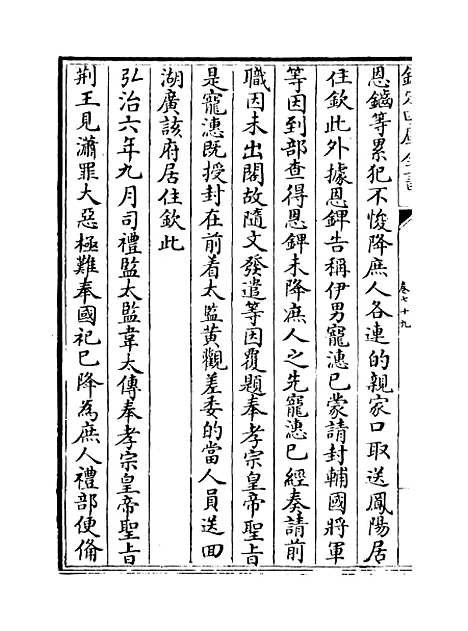 欽定四庫全書
卷七十九
恩鏑等累犯不悛降庶人各連的親家口取送鳳陽居
住欽此外據恩鋍告稱伊男寵漗已蒙請封輔國將軍
等因到部查得恩鋍未降庶人之先寵漗已經奏請前
職因未出閤故隨文發遣等因覆題奉孝宗皇帝聖旨
是寵漗既授封在前着太監黃觀差委的當人員送回
湖廣該府居住欽此
弘治六年九月司禮監太監韋太傳奉孝宗皇帝聖旨
荆王見潚罪大惡極難奉國祀已降為庶人禮部便備